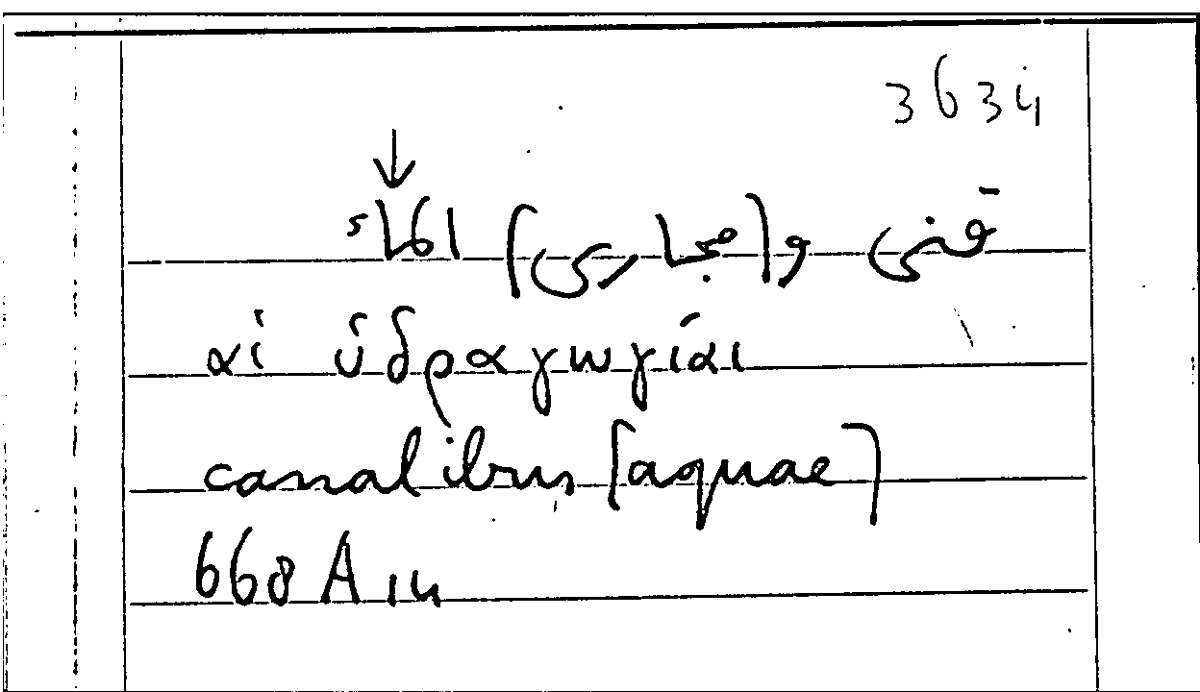 3634
↓
قنى و[مجارى] الماء
αἱ ὑδραγωγίαι
canalibus [aquae]
668 A 14